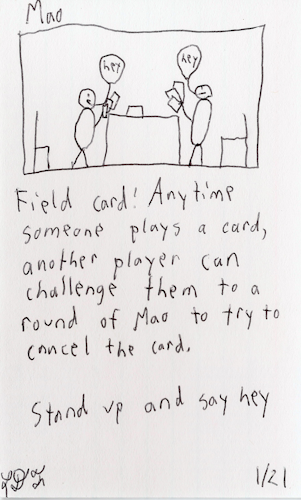 Mao
hey hey
Field card! Anytime
someone plays a card,
another player can
challenge them to a
round of Mao to try to
cancel the card.
Stand up and say hey
1/21